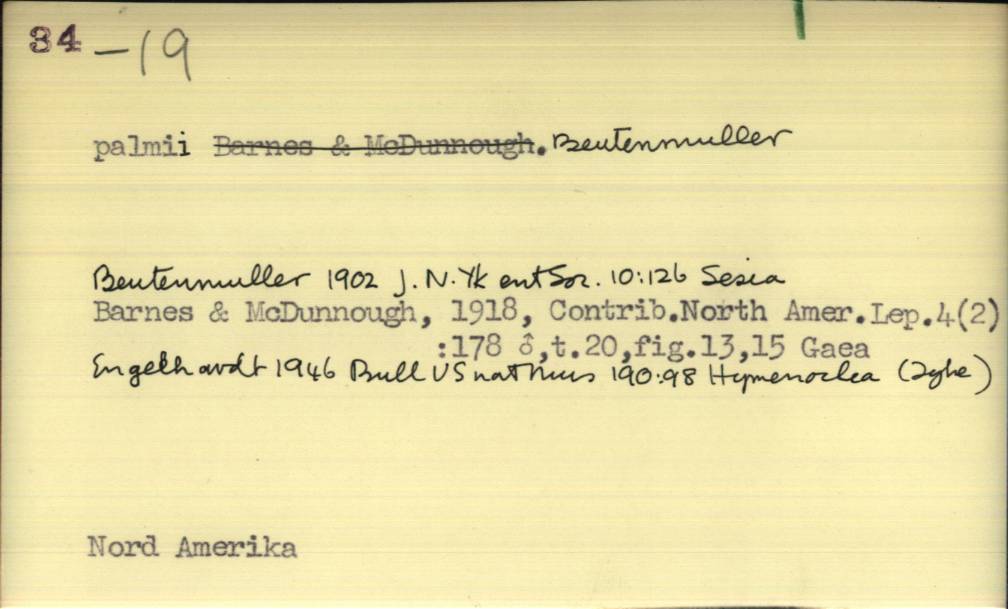 34 – 19
palmii Barnes & McDunnough. Beutenmuller
Beutenmuller 1902 J. N. Yk ent Soc. 10:126 Sesia
Barnes & McDunnough, 1918, Contrib.North Amer.Lep.4(2)
:178 ♂,t.20,fig.13,15 Gaea
Engelhardt 1946 Bull US nat Mus 190:98 Hymenoclea
Nord Amerika